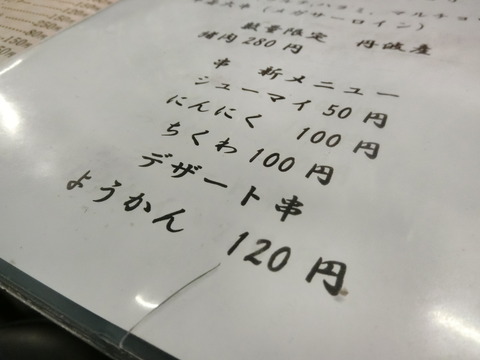 (メガサーロイン)
数量限定 丹波産
猪肉 280円
串 新メニュー
シューマイ 50円
にんにく 100円
ちくわ 100円
デザート串
ようかん 120円